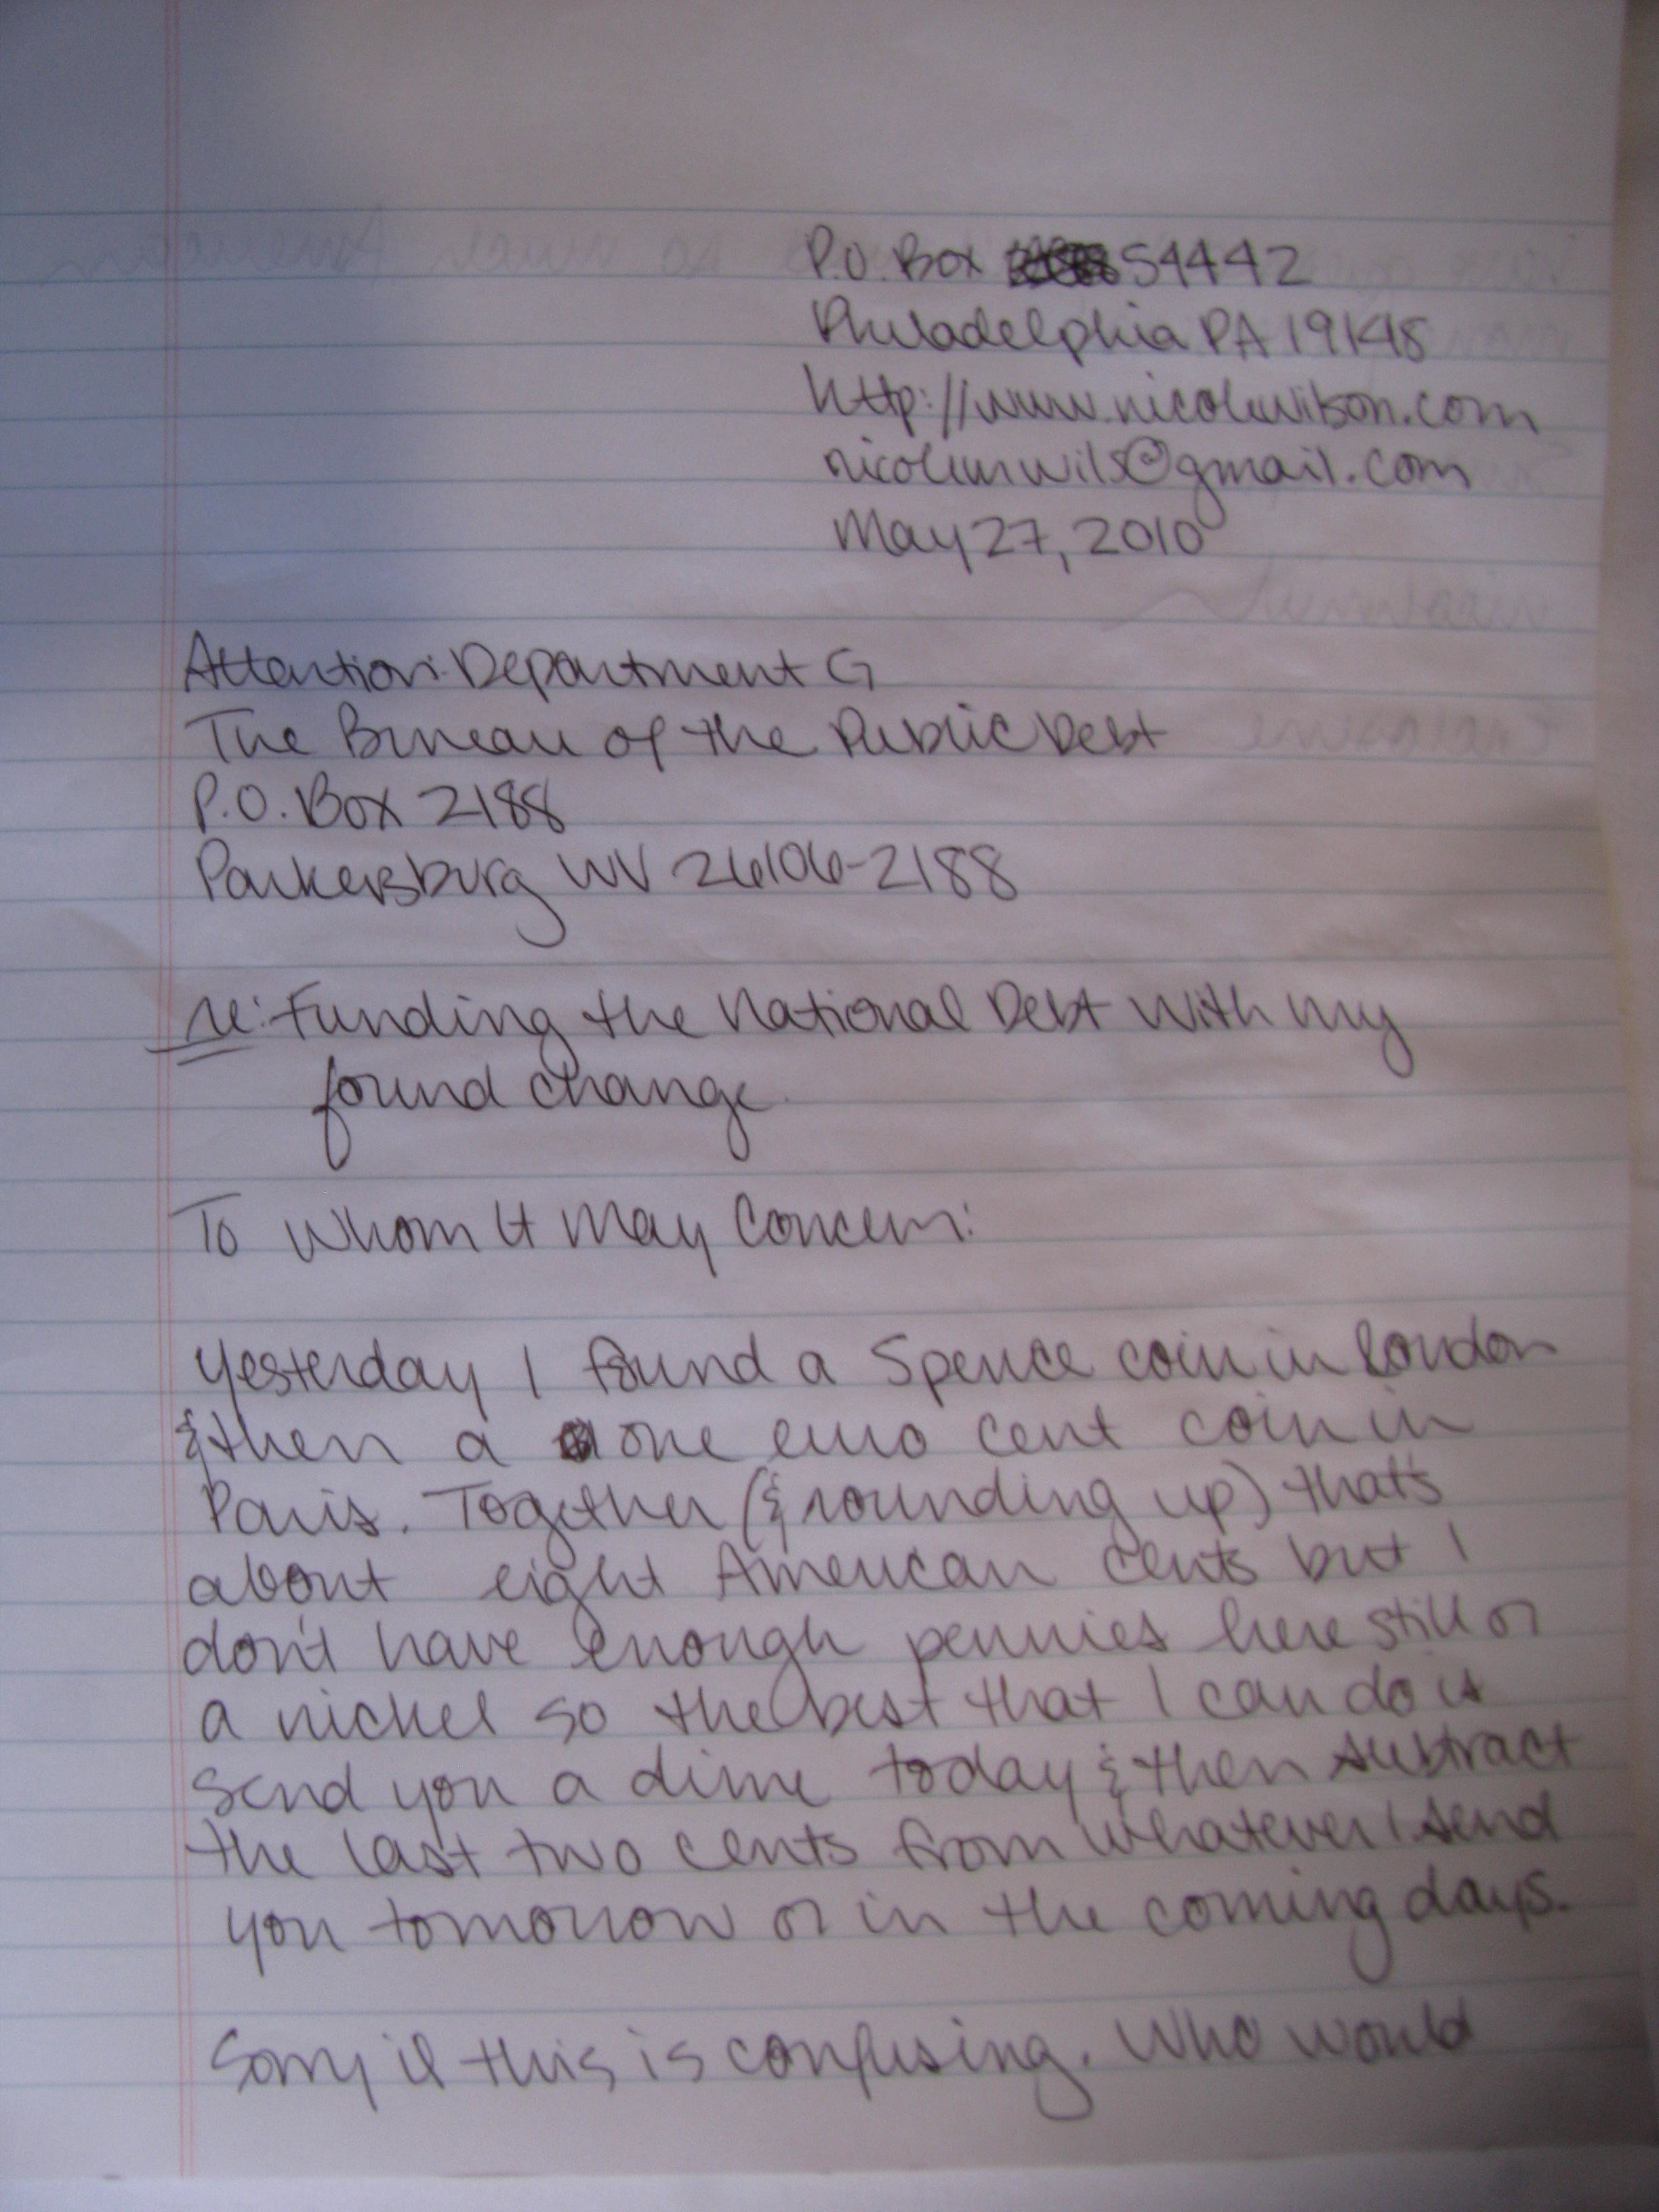 P.O. Box 54442
Philadelphia PA 19148
http://www.nicolewilson.com
May 27, 2010
Attention: Department G
The Bureau of the Public Debt
P.O. Box 2188
Parkersburg WV 26106-2188
re: Funding the National Debt with my
found change
To Whom It May Concern:
Yesterday I found a 5pence coin in London
& then a one euro cent coin in
Paris. Together (& rounding up) that's
about eight American cents but I
don't have enough pennies here still or
a nickel so the best that I can do is
send you a dime today & then subtract
the last two cents from whatever I send
you tomorrow or in the coming days.
Sorry if this is confusing. Who would